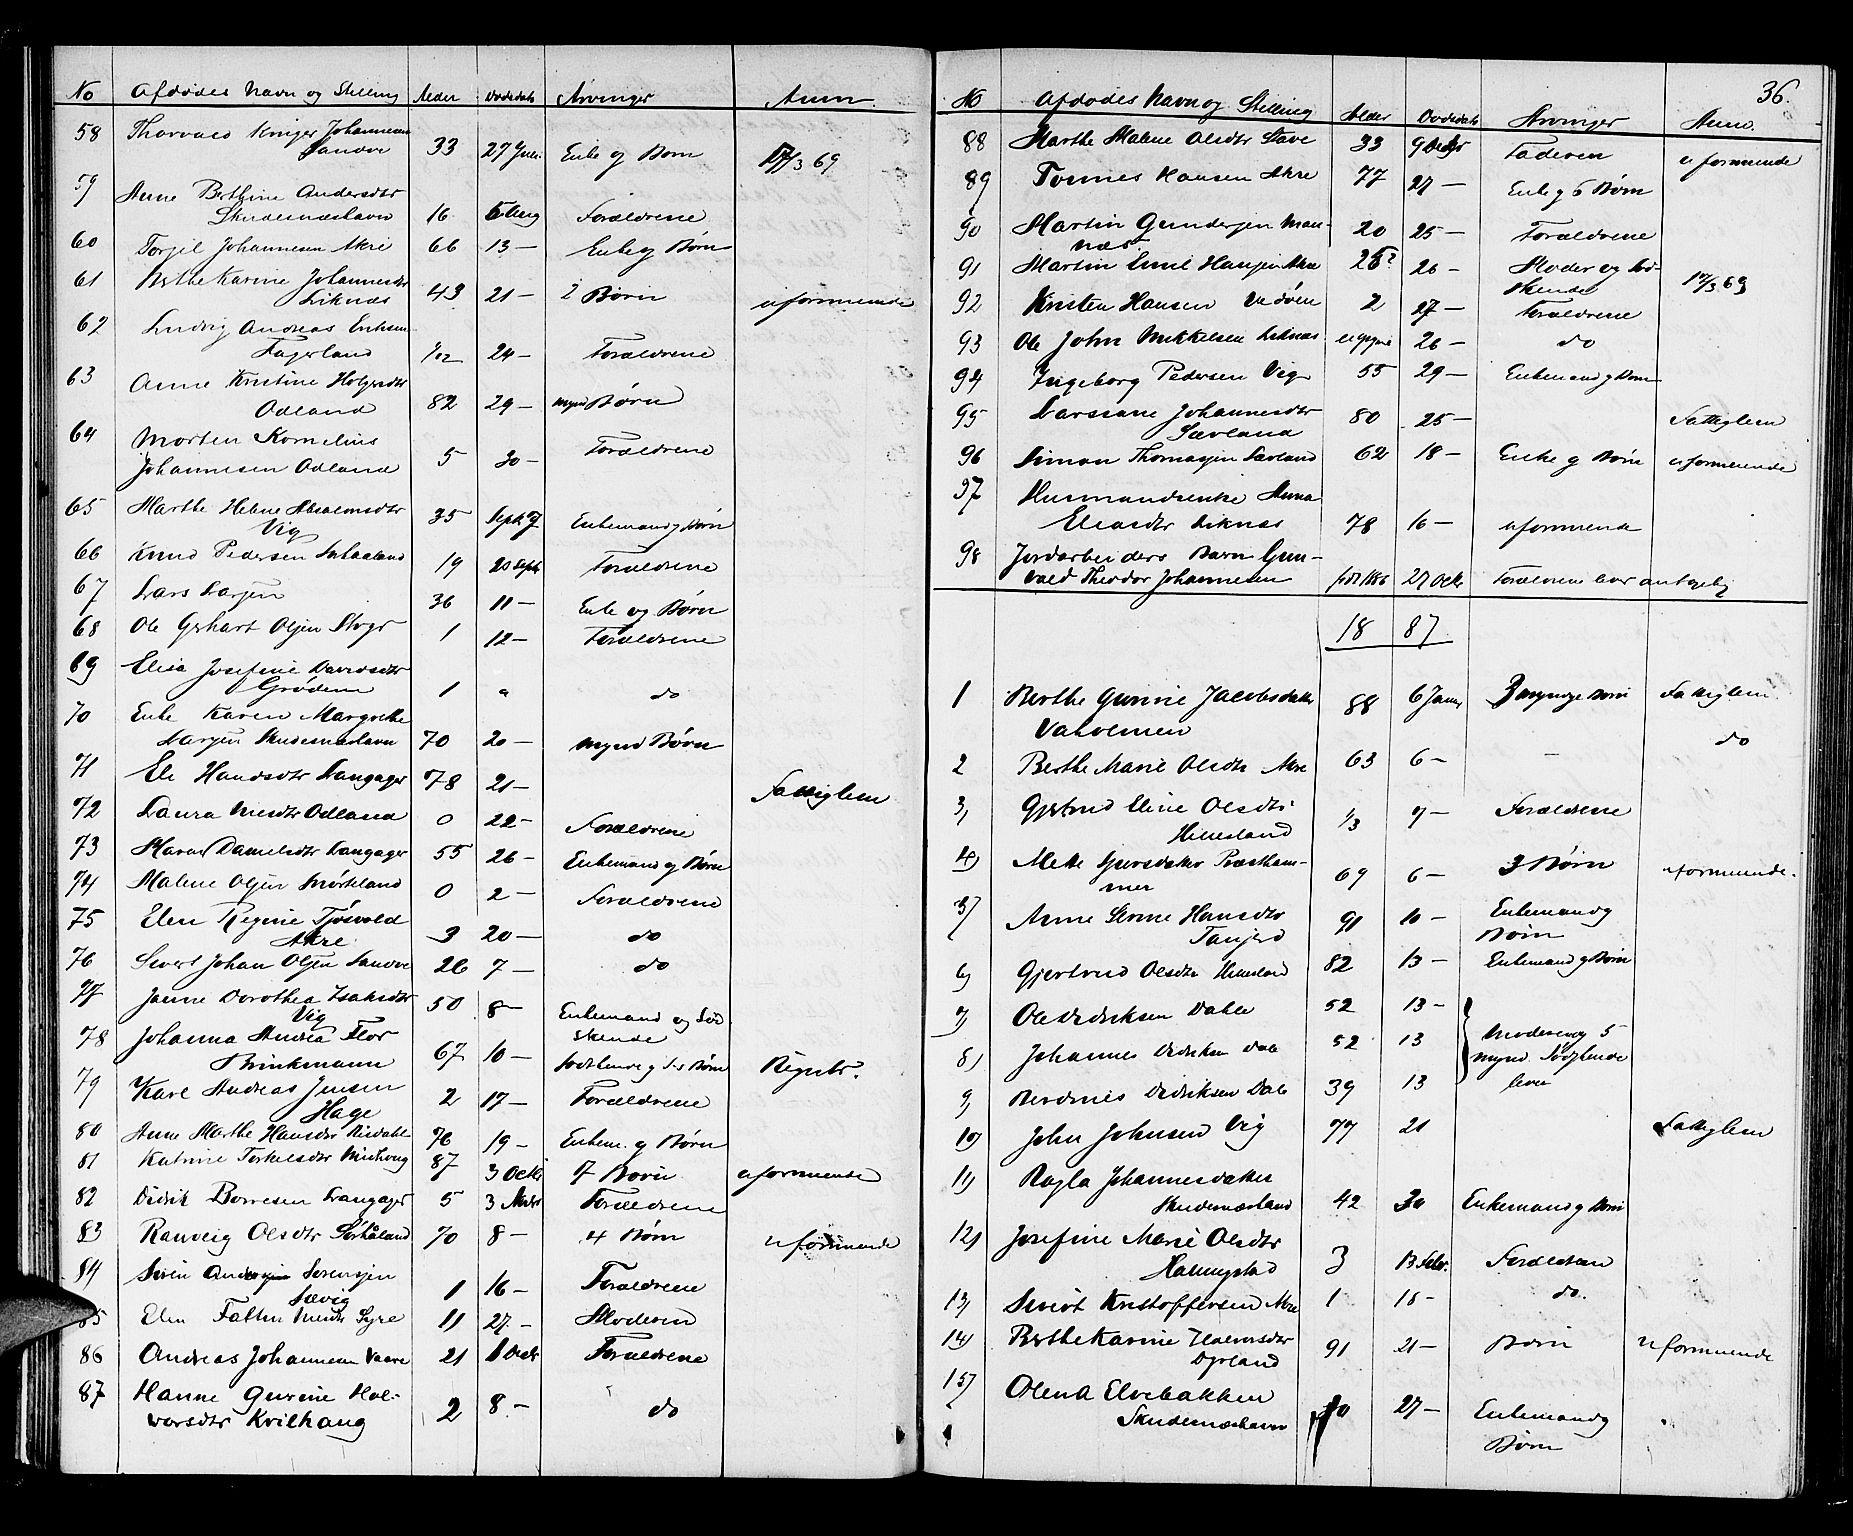 No Afdødes Navn og Stilling Alder Dødsdato Arvinger Anm.
58 Thorvald Kriger Johannesen
Sandve 33 27 Juli Enke og Børn 17/3 69
59 Anne Berthine Andersdtr
Skudesnæshavn 16 5 Aug Forældrene
60 Torgil Johannesen Akre 66 13 — Enke og Børn
61 Berthe Karine Johannesdtr
Liknæs 43 21 — 2 Børn uformuende
62 Ludvig Andreas Eriksen
Fagerland 1/12 24 — Forældrene
63 Anne Kristine Holgersdtr
Odland 82 29 — mynd Børn
64 Morten Kornelius
Johannesen Odland 5 30 — Forældrene
65 Marthe Helene Absalomsdtr
Vig 35 Septb 7 Enkemand og Børn
66 Knud Pedersen 19 20 Septb Forældrene
67 Lars Larsen 36 11 — Enke og Børn
68 Ole Gerhart Olsen 1 12 — Forældrene
69 Elisa Josefine Davidsdtr
Grødem 1 " do
70 Enke Karen Margrethe
Larsen Skudesnæshavn 70 20 — mynd Børn
71 Eli Hansdtr Langager 78 21 — Fattiglem
72 Laura Nilsdtr Odland 0 22 — Forældrene
73 Maren Danielsdtr Langager 55 26 — Enkemand og Børn
74 Malene Olsen Mørkland 0 2 — Forældrene
75 Elen Regine Tjøsvold
Akre 3 20 — do
76 Sivert Johan Olsen Sandve 26 7 — do
77 Janne Dorothea Isaksdtr
Vig 50 8 — Enkemand og Sød-
skende
78 Johanna Andrea Flor
Brinkmann 67 10 — Sødskende og Børn Registr.
79 Karl Andreas Jensen
Hage 2 17 — Forældrene
80 Anne Marthe Hansdtr Risdahl 76 19 — Enkem. og Børn
81 Katrine Torkelsdtr 87 3 Octbr 7 Børn uformuende
82 Didrik Børresen Langager 5 3 Novbr Forældrene
83 Ranveig Olsdtr Sørhåland 70 8 — 4 Børn uformuende
84 Sivin Andersen Sørensen
Sævig 1 16 — Forældrene
85 Elen Nilsdtr Syre 11 27 — Moderen
86 Andreas Johannesen Vaare 21 1 Decbr Forældrene
87 Hanne Gurine Hal-
vorsdtr Kvilhaug 2 8 — do
36.
No Afdødes Navn og Stilling Alder Dødsdato Arvinger Anm.
88 Marthe Malene Olsdtr Stave 33 9 Decbr Faderen uformuende
89 Tormes Hansen Akre 77 27 — Enke og 6 Børn
90 Martin Gundersen Man-
næs 20 25 — Forældrene
91 Martin Emil Hansen Akre 25? 26 — Moder og Sød-
skende 17/3 69
92 Kristen Hansen Vedøen 2 27 — Forældrene
93 Ole John Mikkelsen Liknæs 26 — do
94 Ingeborg Pedersen Vig 55 29 — Enkemand og Børn
95 Larssine Johannesdtr
Sævland 80 25 — Fattiglem
96 Simon Thomassen Sævland 62 18 — Enke og Børn uformuende
97 Husmandsenke Anna
Eliasdtr Liknæs 78 16 — uformuende
98 Jordarbeiders Barn Gun-
vald Theodor Johannesen født 1886 27 Octr Forældrene lever
18 87
1 Berthe Gurine Jacobsdatter
Vaholmen 88 6 Janr 3 myndige Børn Fattiglem
2 Berthe Marie Olsdtr Akre 63 6 — — do
3) Gjertrud Eline Olsdtr
Hillesland 1/3 7 — Forældrene
4) Mette Sjursdatter Præstham-
mer 69 6 — 3 Børn uformuende.
5) Anne Serine Hansdtr
Tanjerd 91 10 — Enkemand og
Børn
6) Gjertrud Olsdtr Hillesland 82 13 — Enkemand og Børn
7) Ole Didriksen Dahle 52 13 —
8) Johannes Didriksen Dale 52 13 Moderen og 5
mynd. Sødskende
lever
9) Berdines Didriksen Dale 39 13
10) John Johnsen Vig 77 21 Fattiglem
11) Ragla Johannesdatter
Skudesnæsland 42 30 Enkemand og Børn
12) Josefine Marie Olsdtr
Halvingstad 3 13 Febr. Forældrene
13) Sivert Kristoffersen Akre 1 18 — do.
14) Berthe Karine Halvorsdtr
Dyrland 91 21 — Børn uformuende
15) Olena Elvebakken
Skudesnæshavn 27 — Enkemand og
Børn